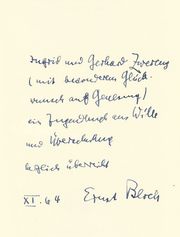 Ingrid und Gerhard Zwerenz
(mit besonderem Glück-
wunsch auf Genesung)
ein Jugendbuch aus Wille
und Überschuss
herzlich überreicht
XI. 64 Ernst Bloch